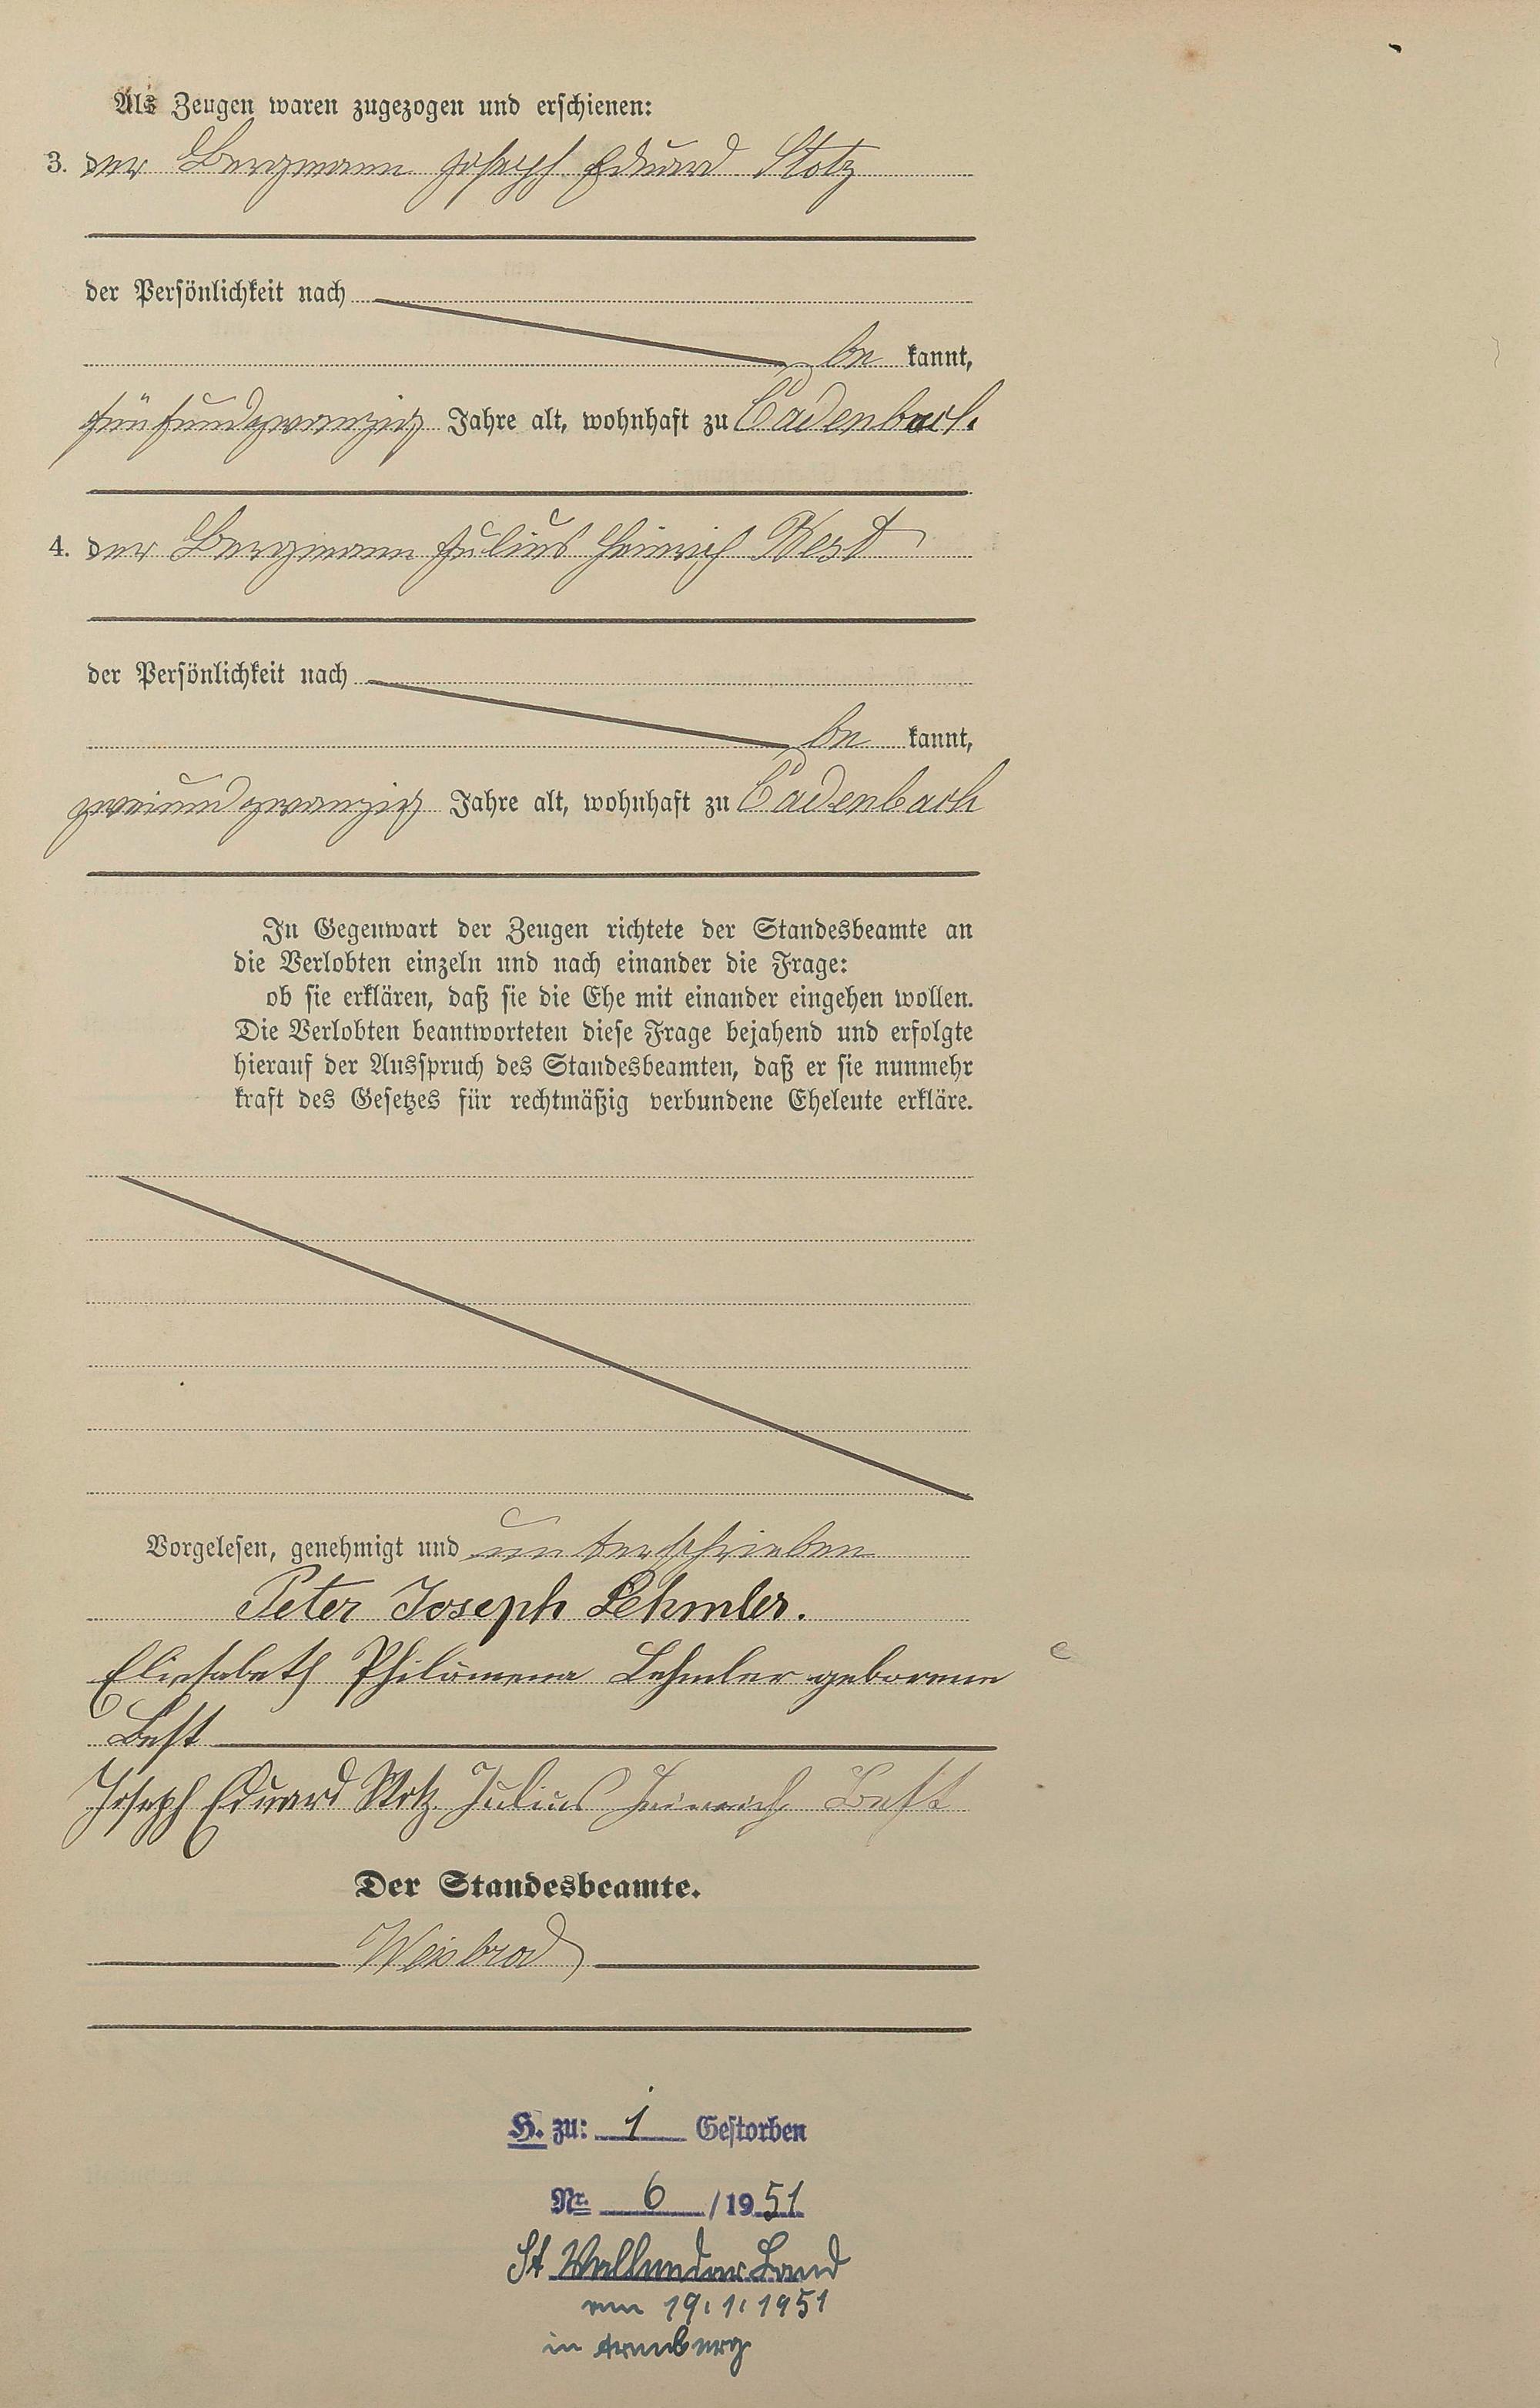 Als Zeugen waren zugezogen und erschienen:
3. der Bergmann Joseph Eduard Stotz
der Persönlichkeit nach
be kannt,
fünfundzwanzig Jahre alt, wohnhaft zu Cadenbach
4. der Bergmann Julius Heinrich Best
der Persönlichkeit nach
be kannt,
zweiundzwanzig Jahre alt, wohnhaft zu Cadenbach
In Gegenwart der Zeugen richtete der Standesbeamte an
die Verlobten einzeln und nach einander die Frage:
ob sie erklären, daß sie die Ehe mit einander eingehen wollen.
Die Verlobten beantworteten diese Frage bejahend und erfolgte
hierauf der Ausspruch des Standesbeamten, daß er sie nunmehr
kraft des Gesetzes für rechtmäßig verbundene Eheleute erkläre.
Vorgelesen, genehmigt und unterschrieben
Peter Joseph Lehmler.
Elisabeth Philomena Lehmler geborene
Best
Joseph Eduard Stotz Julius Heinrich Best
Der Standesbeamte.
Weisbrod
H. zu: 1 Gestorben
Nr. 6 / 1951
St Vallendar Land
am 19.1.1951
in Arenberg